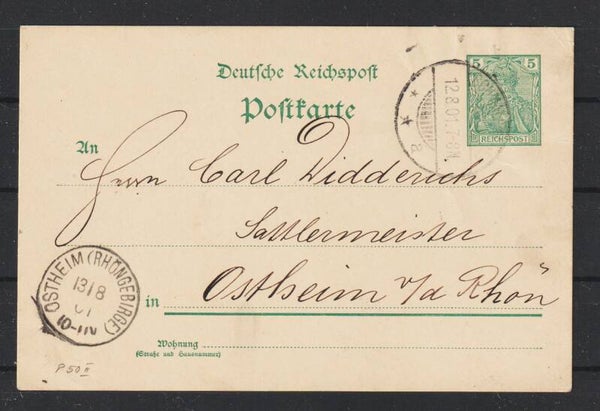 Deutsche Reichspost
Postkarte
5 5
REICHSPOST
12.8.01.7-8N.
* *
a
An
Herrn Carl Didderichs
Sattlermeister
in Ostheim v/d Rhön
Wohnung
(Straße und Hausnummer)
OSTHEIM (RHÖNGEBIRGE)
13/8
01
10-11V
P 50 II